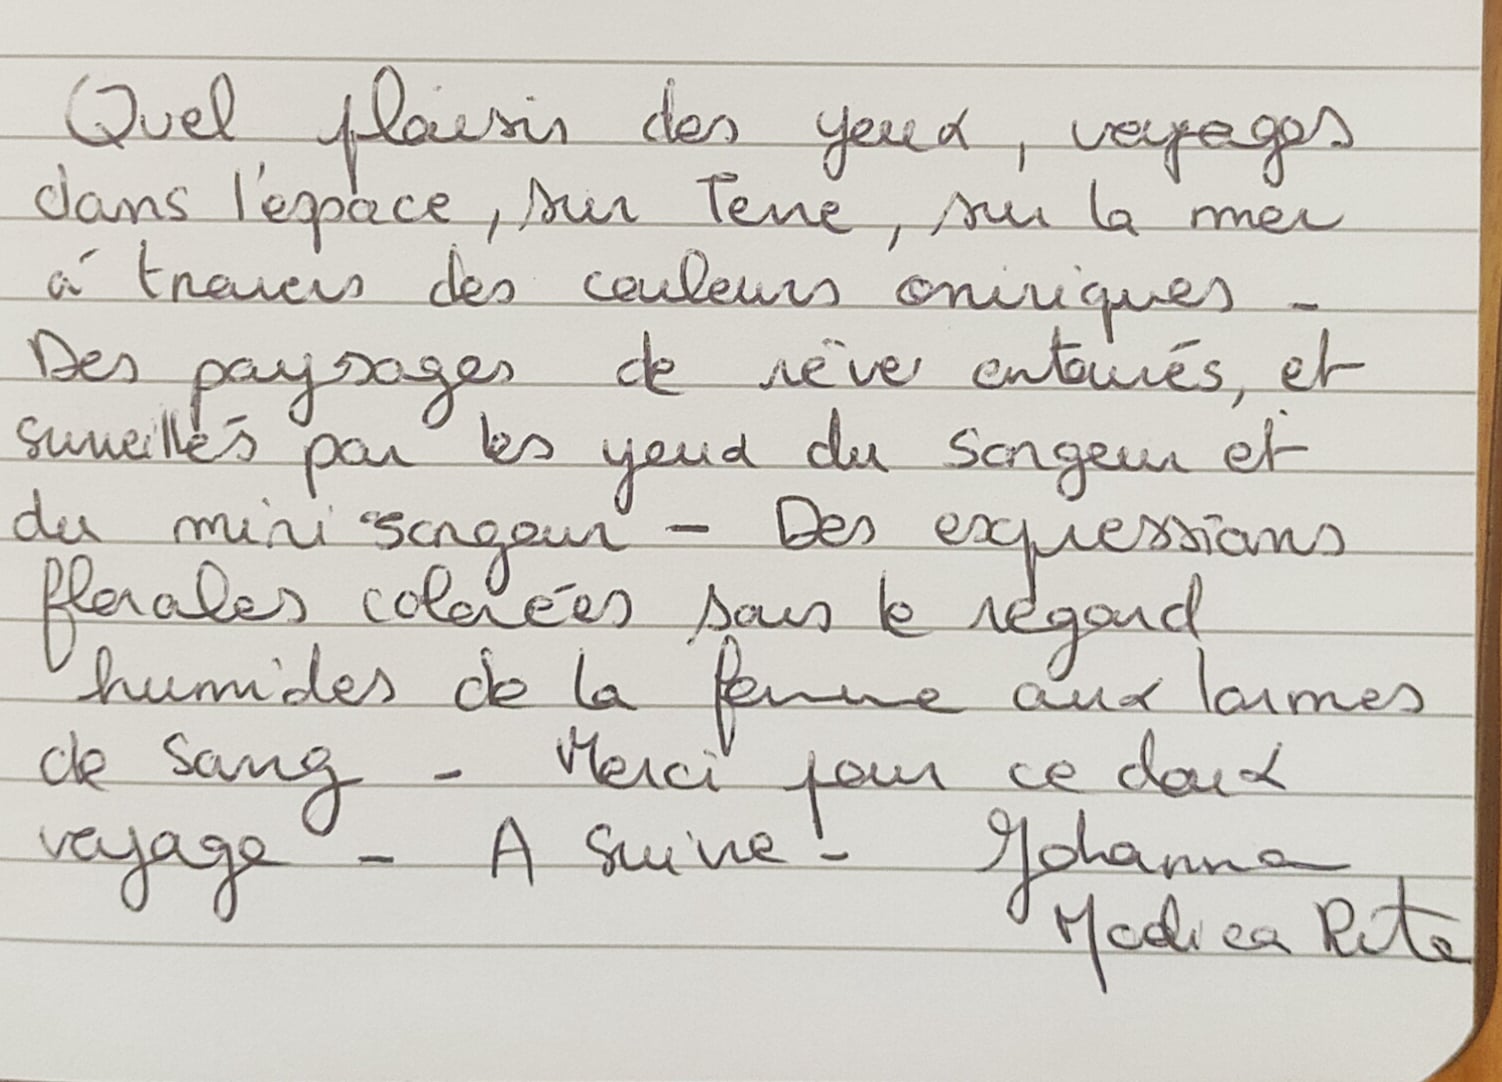 Quel plaisir des yeux, voyages
dans l'espace, sur Terre, sur la mer
à travers des couleurs oniriques -
Des paysages de rêve entourés, et
surveillés par les yeux du Songeur et
du mini songeur - Des expressions
florales colorées sous le regard
humides de la femme aux larmes
de Sang - Merci pour ce doux
voyage - A Suivre - Johanna
Modica Rita